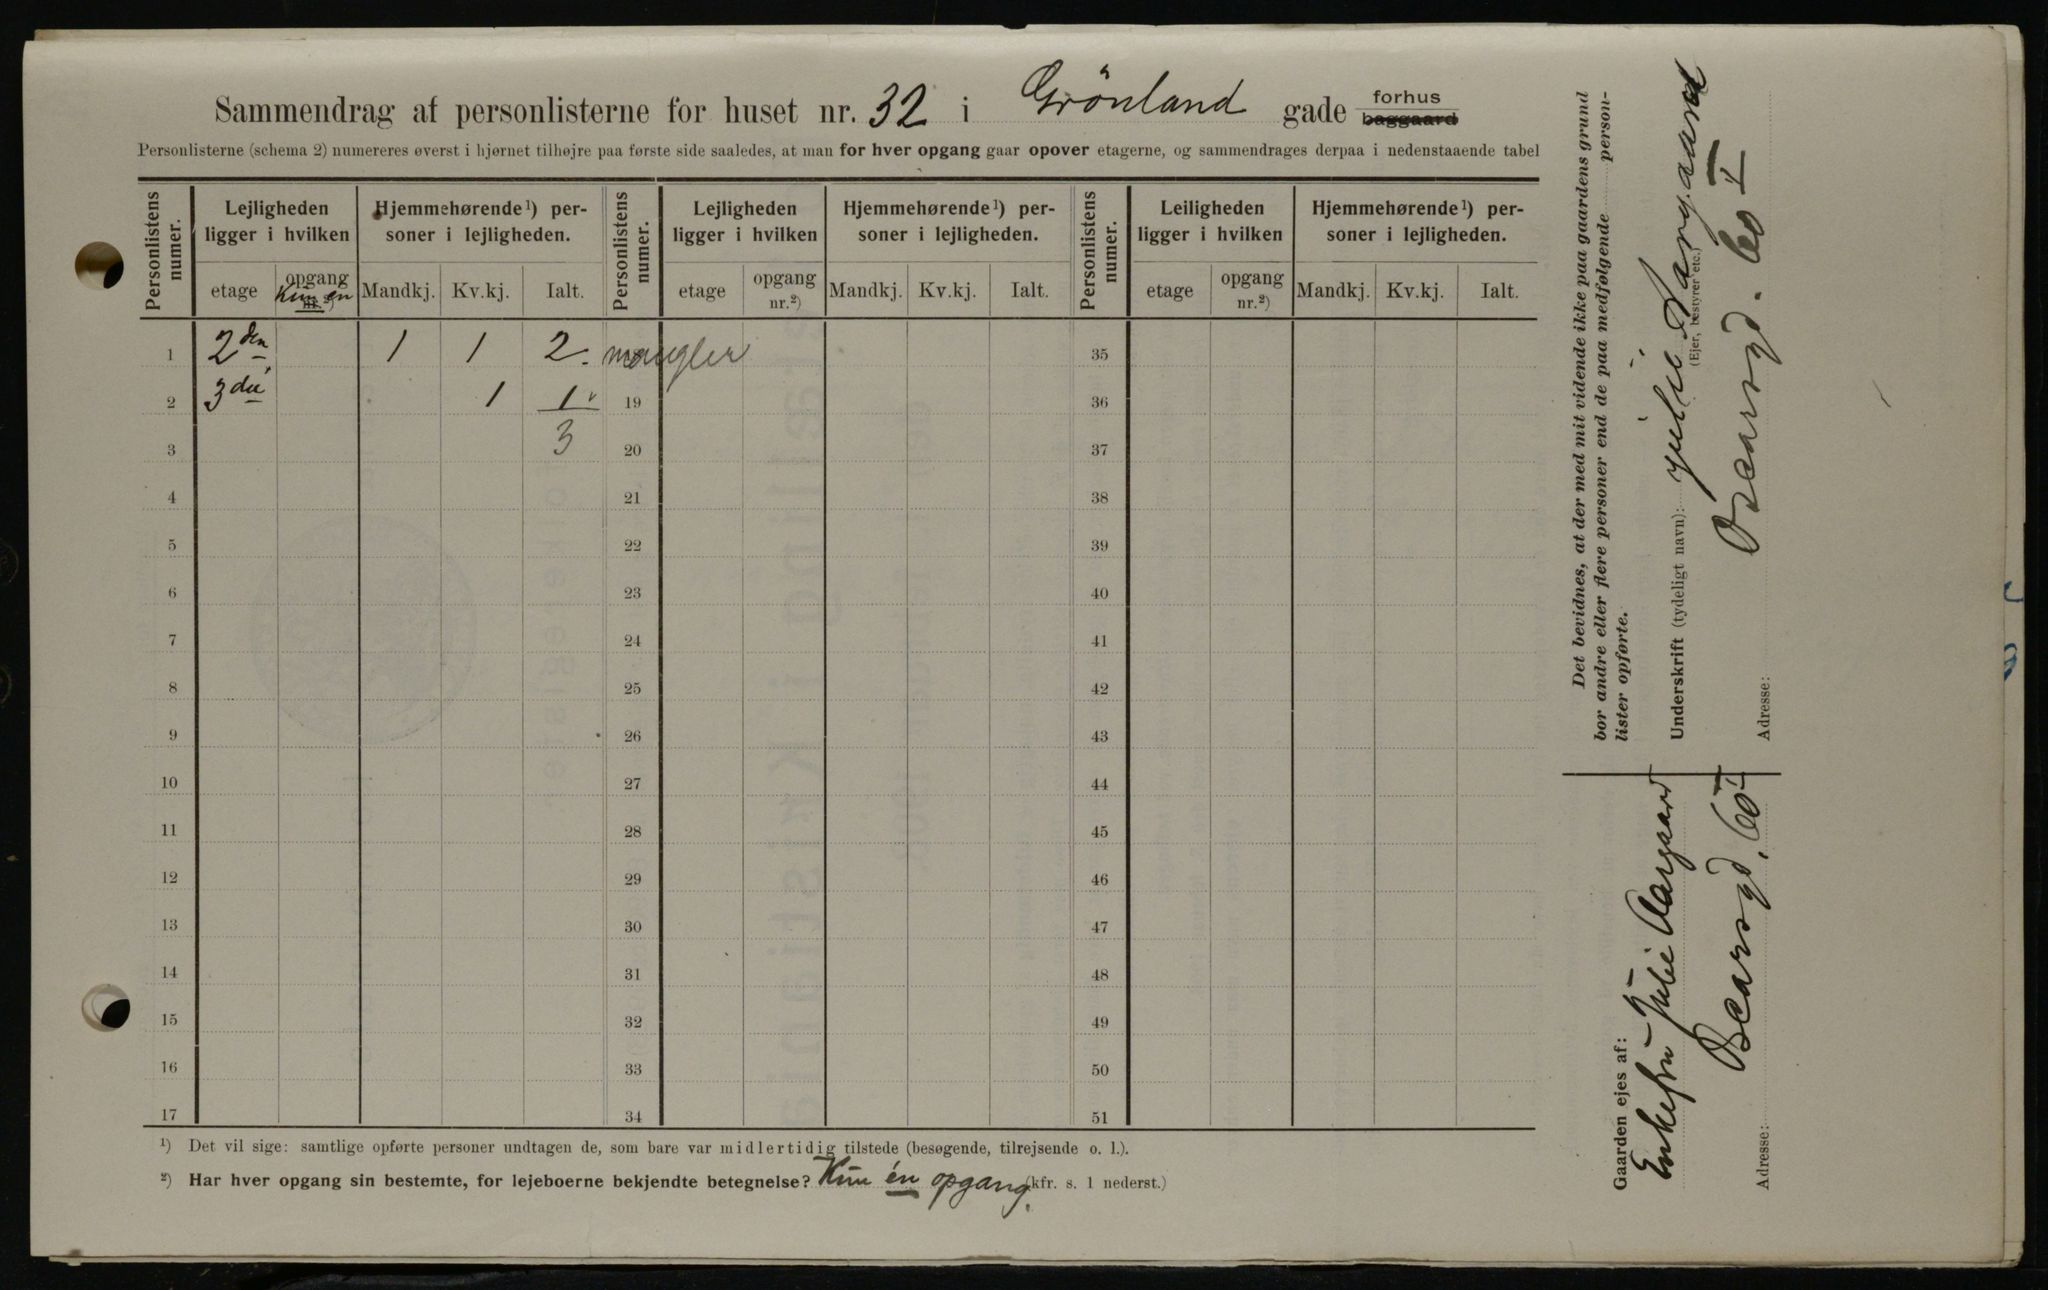 Sammendrag af personlisterne for huset nr. 32 i Grönland gade forhus baggaard
Personlisterne (schema 2) numereres øverst i hjørnet tilhøjre paa første side saaledes, at man for hver opgang gaar opover etagerne, og sammendrages derpaa i nedenstaaende tabel
Personlistens numer. Lejligheden ligger i hvilken Hjemmehørende¹) personer i lejligheden. Personlistens numer. Lejligheden ligger i hvilken Hjemmehørende¹) personer i lejligheden. Personlistens numer. Leiligheden ligger i hvilken Hjemmehørende¹) personer i lejligheden.
etage opgang nr. ²) Kun én Mandkj. Kv.kj. Ialt. etage opgang nr.²) Mandkj. Kv.kj. Ialt. etage opgang nr.²) Mandkj. Kv.kj. Ialt.
1 2den 1 1 2. mangler 35
2 3die 1 1 19 36
3 3 20 37
4 21 38
5 22 39
6 23 40
7 24 41
8 25 42
9 26 43
10 27 44
11 28 45
12 29 46
13 30 47
14 31 48
15 32 49
16 33 50
17 34 51
¹) Det vil sige: samtlige opførte personer undtagen de, som bare var midlertidig tilstede (besøgende, tilrejsende o. l.).
²) Har hver opgang sin bestemte, for lejeboerne bekjendte betegnelse? Kun én opgang. (kfr. s. 1 nederst.)
Det bevidnes, at der med mit vidende ikke paa gaardens grund
bor andre eller flere personer end de paa medfølgende personlister opførte.
Underskrift (tydeligt navn): Julie Aargaard
(Ejer, bestyrer etc.)
Adresse: Oscarsgd. 60 I
Gaarden ejes af:
Enkefru Julie Aargaard
Adresse: Oscarsgd. 60 I